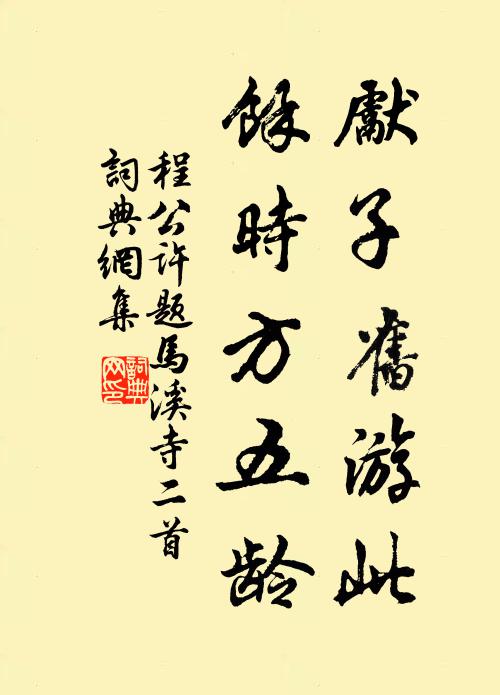 獻子舊游此
餘時方五龄
程公许题馬溪寺二首
詞典網集
詞典網印